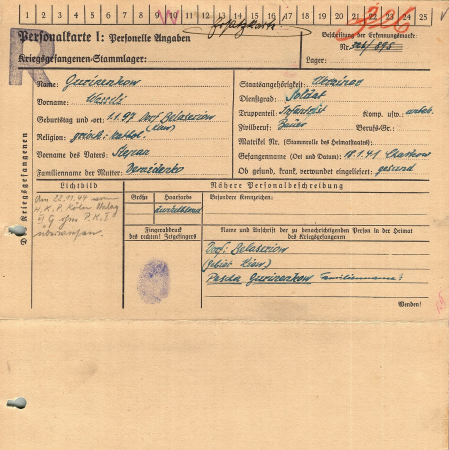 1 2 3 4 5 6 7 8 9 10 11 12 13 14 15 16 17 18 19 20 21 22 23 24 25
Personalkarte I: Personelle Angaben
Beschriftung der Erkennungsmarke
Kriegsgefangenen-Stammlager:
Nr.
Lager:
R
Name: Gurinenkow
Staatsangehörigkeit:
Vorname: Wassili
Dienstgrad: Soldat
Geburtstag und -ort: 1.1.97 Dorf Belaserion
(Kiew)
Truppenteil: Infanterist Komp. usw.: unbek.
Religion: griech. kathol.
Zivilberuf: Bauer Berufs-Gr.:
Vorname des Vaters: Stepan
Matrikel Nr. (Stammrolle des Heimatstaates):
Familienname der Mutter:
Gefangennahme (Ort und Datum): 18.1.41 Charkow
Ob gesund, krank, verwundet eingeliefert: gesund
Des Kriegsgefangenen
Lichtbild
Nähere Personalbeschreibung
Größe
Haarfarbe
Besondere Kennzeichen:
Am 22.11.44 von
Fingerabdruck
des rechten! Zeigefingers
Name und Anschrift der zu benachrichtigenden Person in der Heimat
des Kriegsgefangenen
Dorf: Belaserion
(Gebiet Kiew)
Pascha Gurinenkow Familienname:
Wenden!